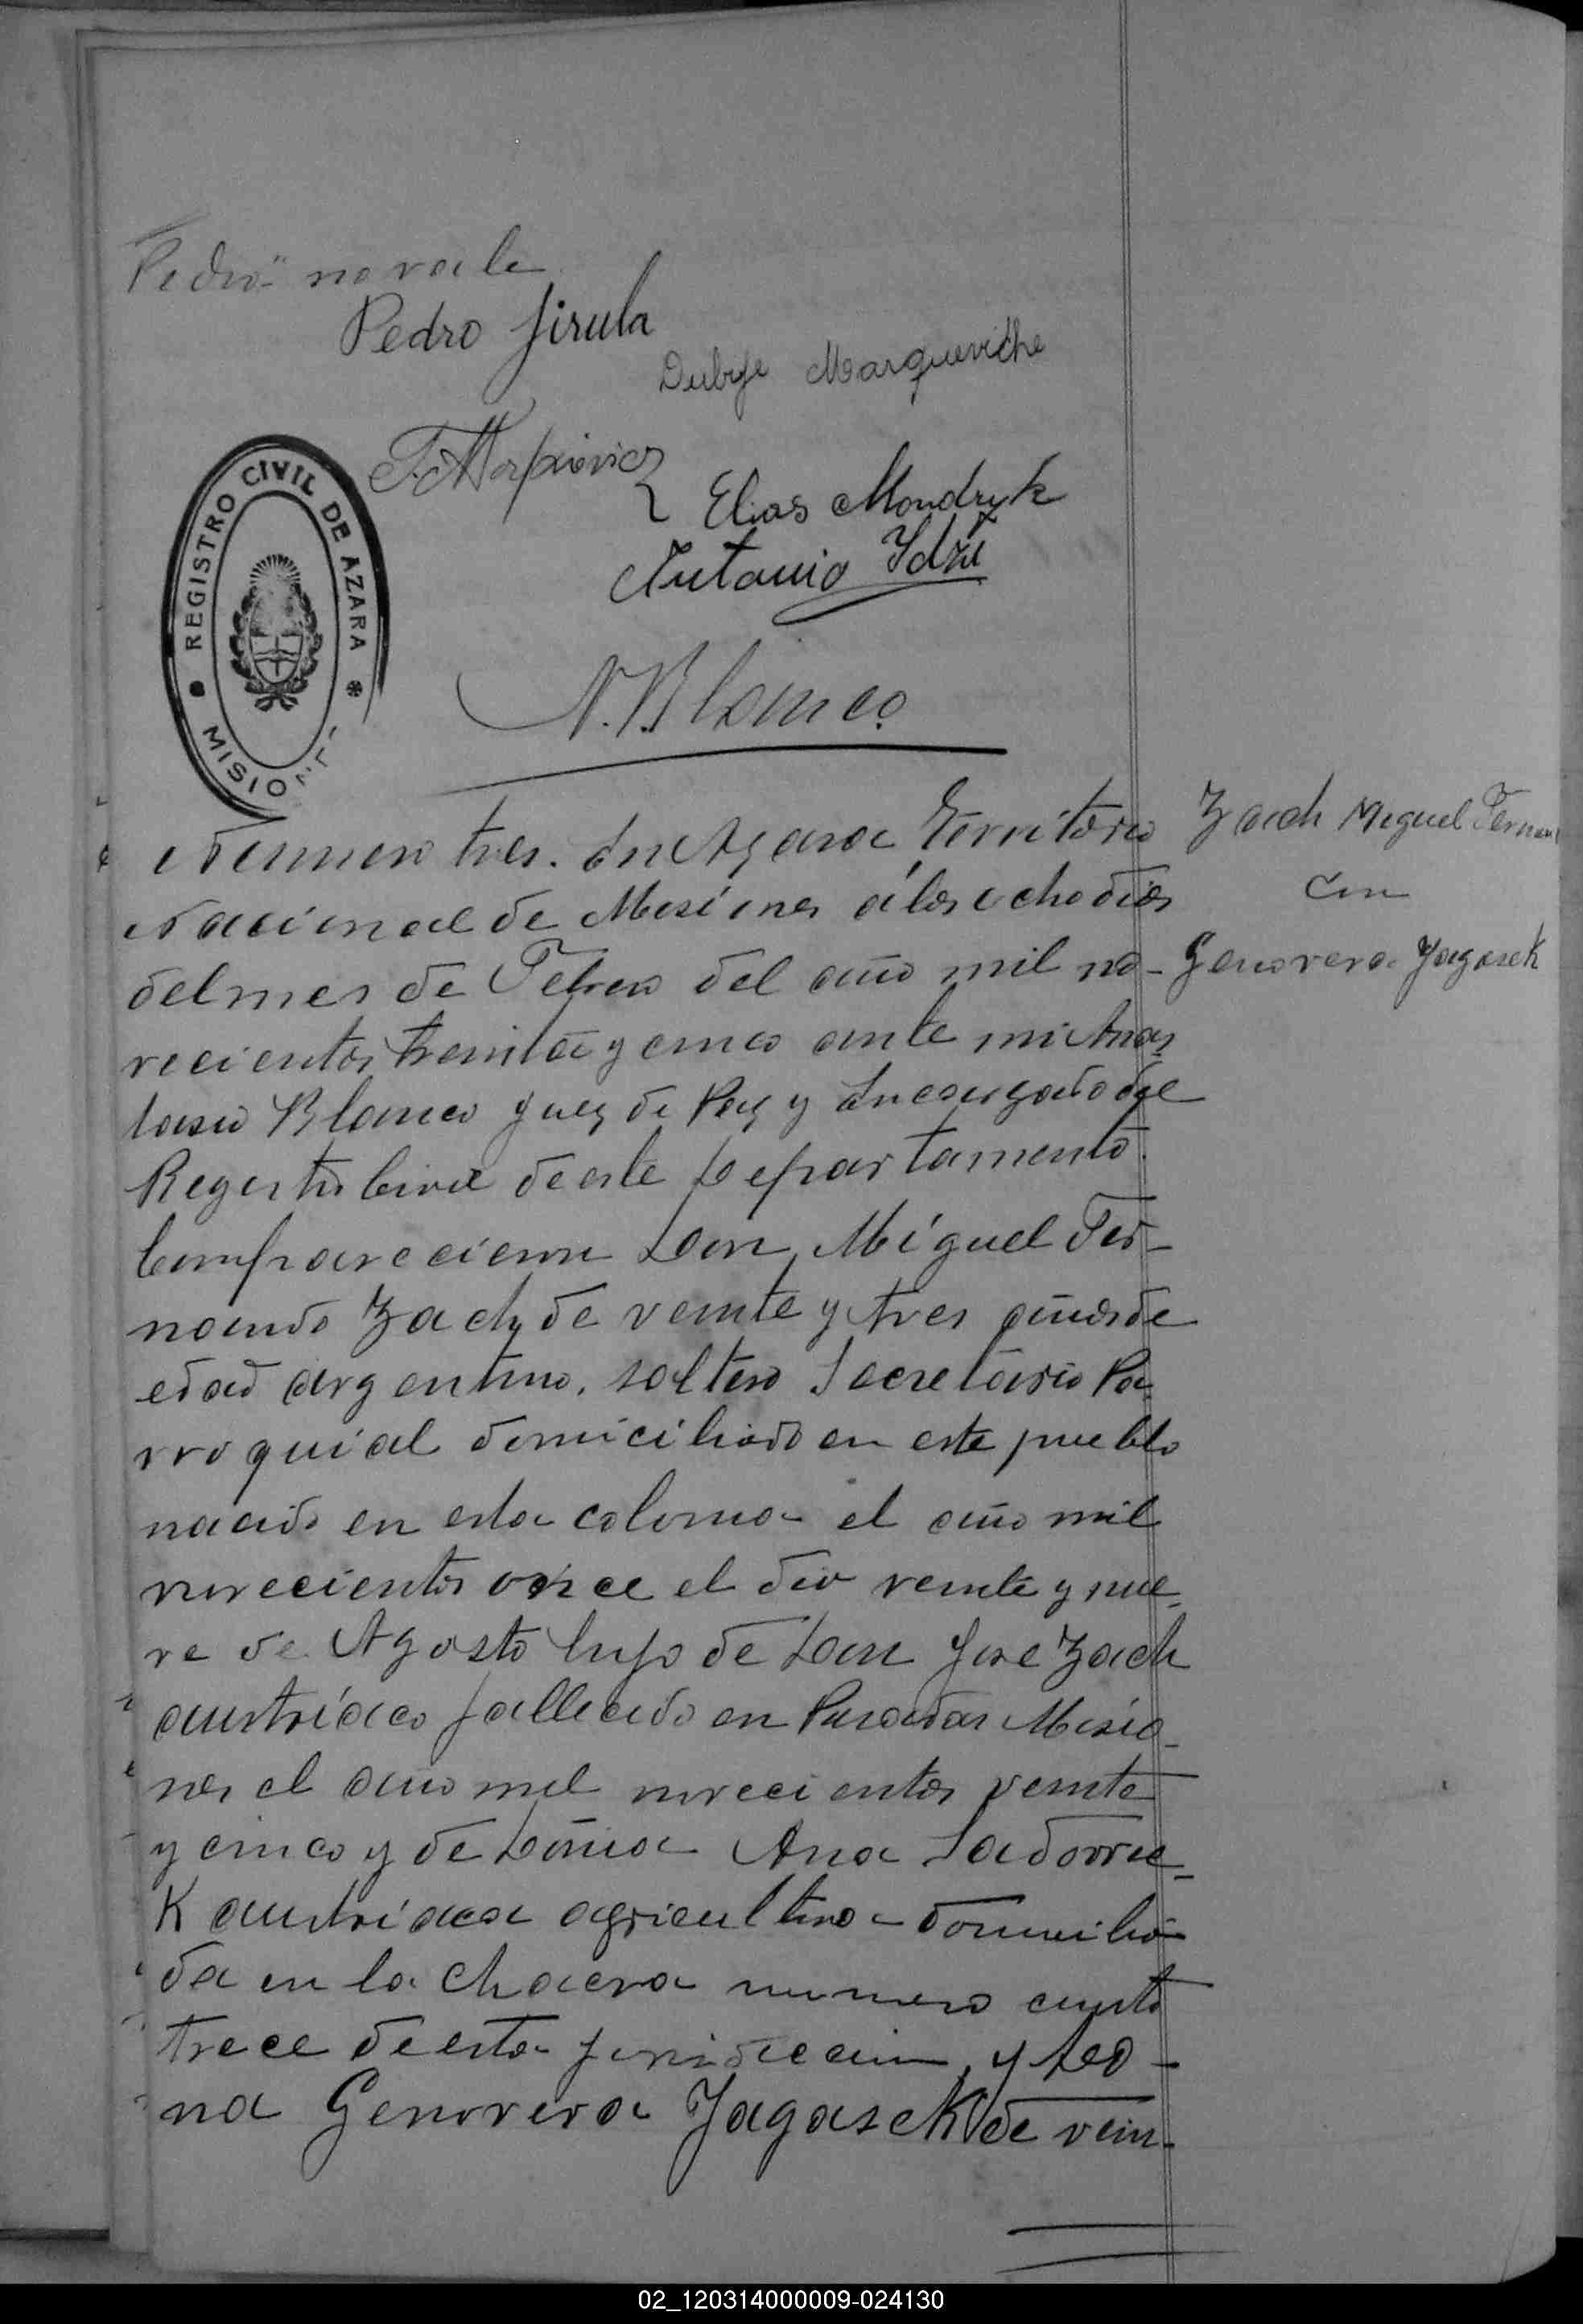 "Pedro" no vale
Pedro Jirula
Dubije Marqueviche
Elias Mondryk
Antonio Idzi
REGISTRO CIVIL DE AZARA
MISIONES
N. Blanco
Zach Miguel Fernan
con
Genoveva Jagasek
Numero tres. En Azara Territorio
Nacional de Misiones á los ocho dias
del mes de Febrero del año mil no-
vecientos treinta y cinco ante mi Anas
tasio Blanco Juez de Paz y Encargado del
Registro Civil de este Departamento.
Comparecieron Don Miguel Fer-
nando Zach, de veinte y tres años de
edad argentino, soltero Secretario Pa-
rroquial domiciliado en este pueblo
nacido en esta colonia el año mil
novecientos once el dia veinte y nue-
ve de Agosto hijo de Don José Zach
austríaco fallecido en Posadas Misio-
nes el año mil novecientos veinte
y cinco y de Doña Ana Sadorne-
K austríaca agricultora domicilia
da en la chacra numero ciento
trece de esta jurisdiccion, y Do-
na Genoveva Jagasek de vein-
02_120314000009-024130